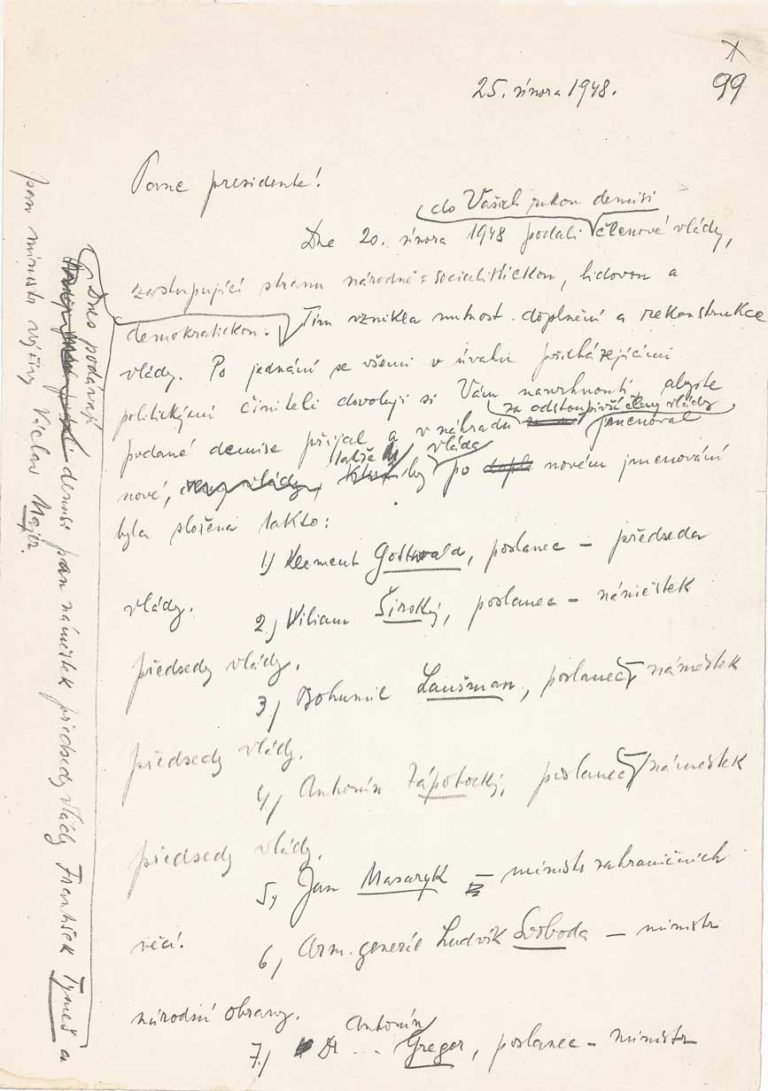 X
99
25. února 1948.
Pane presidente!
do Vašich rukou demisi
Dne 20. února 1948 podali členové vlády,
zastupující stranu národně-socialistickou, lidovou a
demokratickou. Tím vznikla nutnost doplnění a rekonstrukce
vlády. Po jednání se všemi v úvahu přicházejícími
politickými činiteli dovoluji si Vám navrhnouti, abyste
za odstoupivší členy vlády
podané demise přijal a v náhradu jmenoval
takže vláda
nové, členy vlády, by po novém jmenování
byla složena takto:
1) Klement Gottwald, poslanec – předseda
vlády.
2) Viliam Široký, poslanec – náměstek
předsedy vlády.
3) Bohumil Laušman, poslanec, náměstek
předsedy vlády.
4) Antonín Zápotocký, poslanec, náměstek
předsedy vlády.
5) Jan Masaryk – ministr zahraničních
věcí.
6) Arm. generál Ludvík Svoboda – ministr
národní obrany.
Antonín
7.) Dr ... Gregor, poslanec – ministr
Dnes podávají
demisi pan náměstek předsedy vlády František Tymeš a
pan ministr výživy Václav Majer.